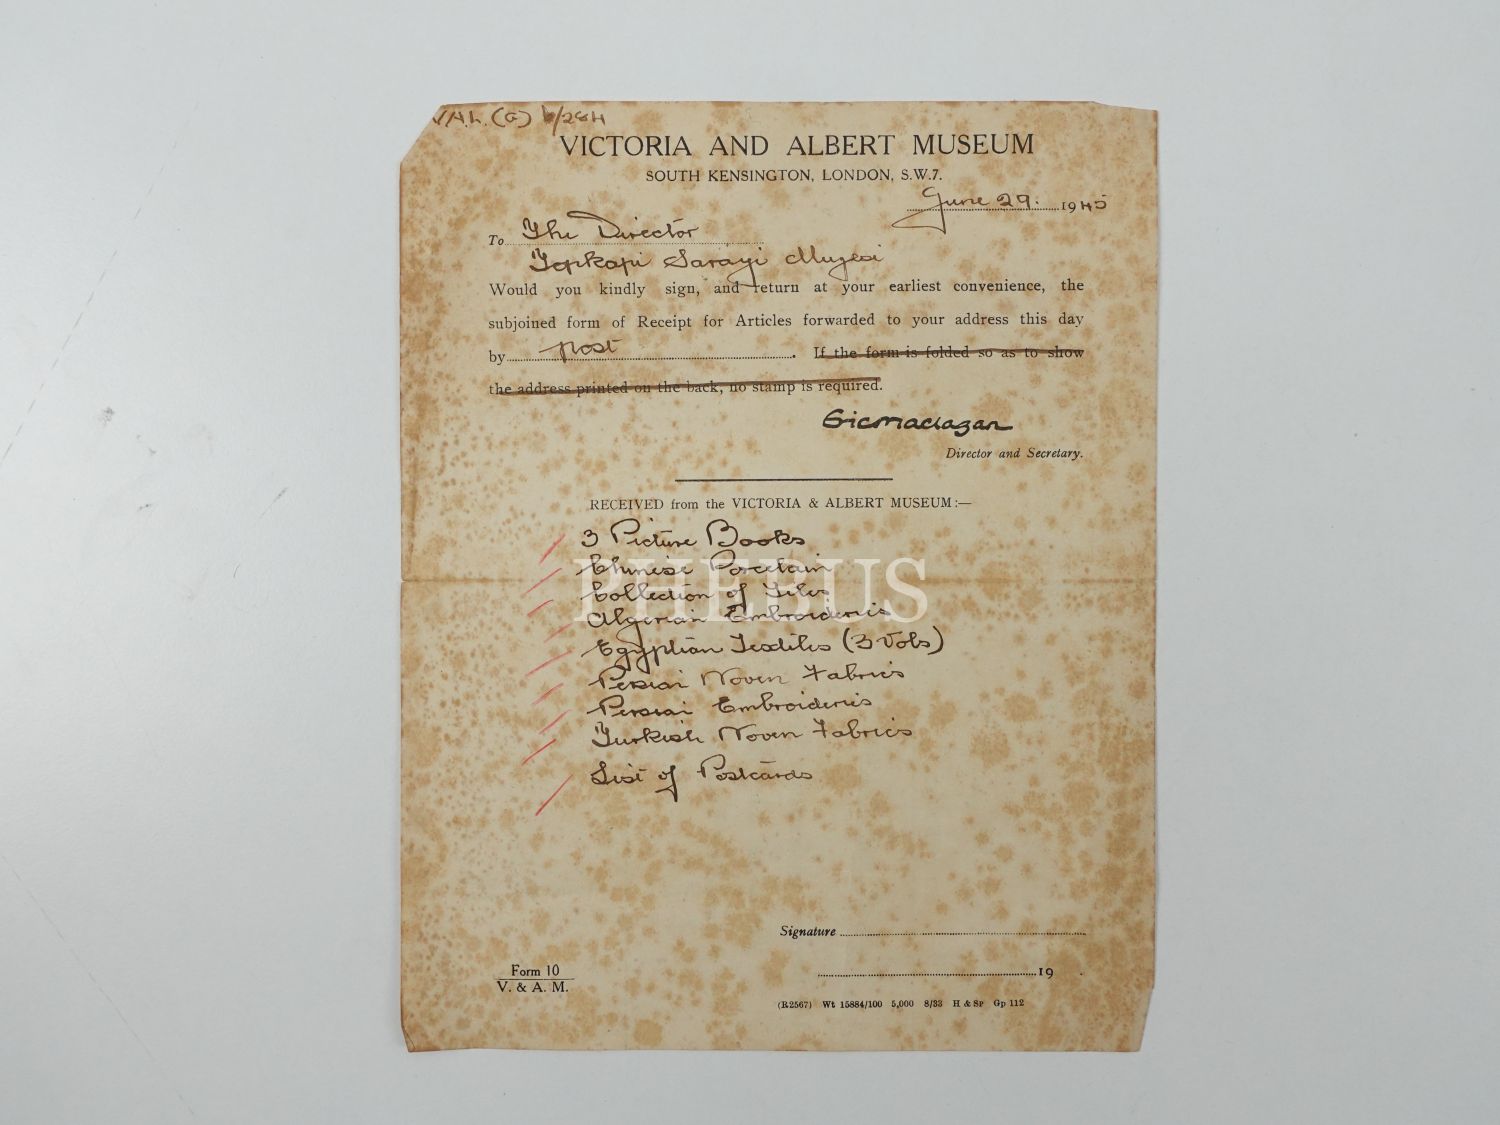 V.A.L. (G) 6/284
VICTORIA AND ALBERT MUSEUM
SOUTH KENSINGTON, LONDON, S.W.7.
June 29. 1945
To The Director
Topkapi Sarayi Muzesi
Would you kindly sign, and return at your earliest convenience, the
subjoined form of Receipt for Articles forwarded to your address this day
by post. If the form is folded so as to show
the address printed on the back, no stamp is required.
Ericmaclagan
Director and Secretary.
RECEIVED from the VICTORIA & ALBERT MUSEUM:—
3 Picture Books
Chinese Porcelain
Collection of Tiles
Algerian Embroideries
Egyptian Textiles (3 Vols)
Persian Woven Fabrics
Persian Embroideries
Turkish Woven Fabrics
List of Postcards
PHEBUS
Signature
Form 10
V. & A. M.
19 .
(R2567) Wt 15884/100 5,000 8/33 H & SP Gp 112